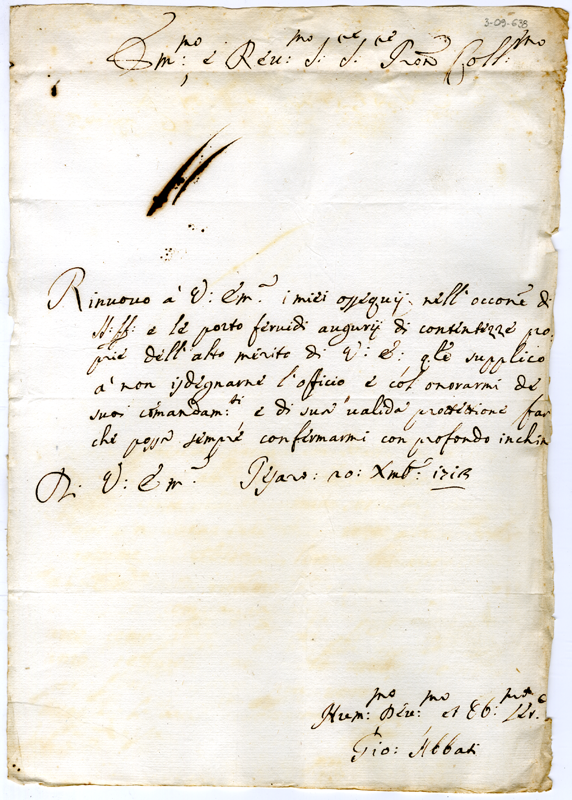 3-09-638
Em:mo e Reu:mo S:re S:re Pron Coll:mo
Rinuouo à V: Em:a i miei ossequij nell'occone di
SS: ff: e le porto feruidi augurij di contentezze pro
prie dell'alto merito di V: E: q.le supplico
à non isdegnarne l'officio e col onorarmi de
suoi comandam:ti e di sua valida protettione far
che possa sempre confermarmi con profondo inchin
Di V: Em:a Pesaro: 20: Xmb:e
Hum:mo Deu:mo et Ob:
Gio: Abbati